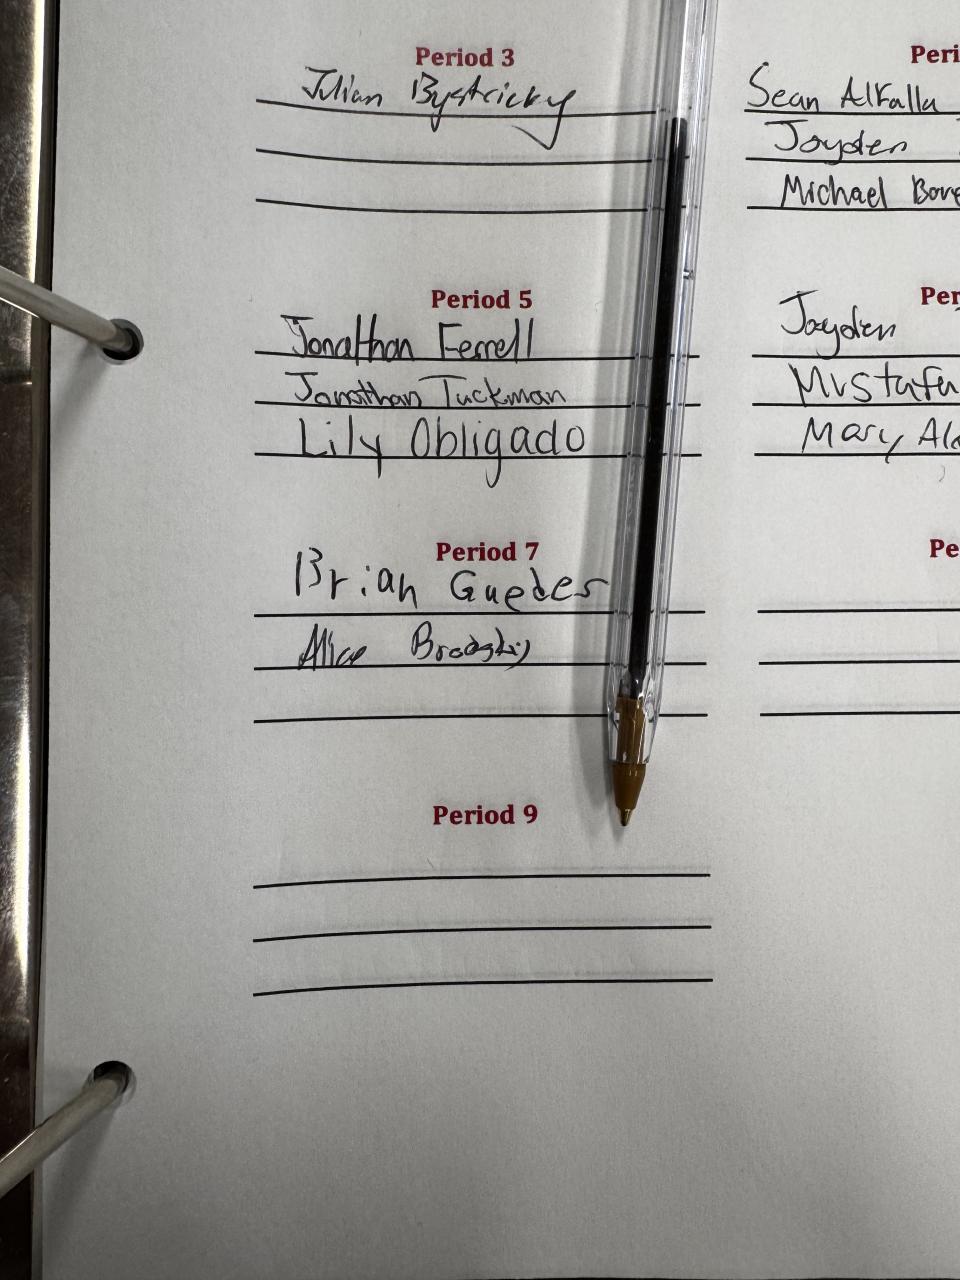 Period 3
Julian Bystricky
Period 5
Jonathan Ferrell
Jonathan Tuckman
Lily Obligado
Period 7
Brian Guedes
Alice Brodskij
Period 9
Peri
Sean Alkalla
Jayden
Michael Bove
Per
Jayden
Mustafa
Mary Ale
Pe